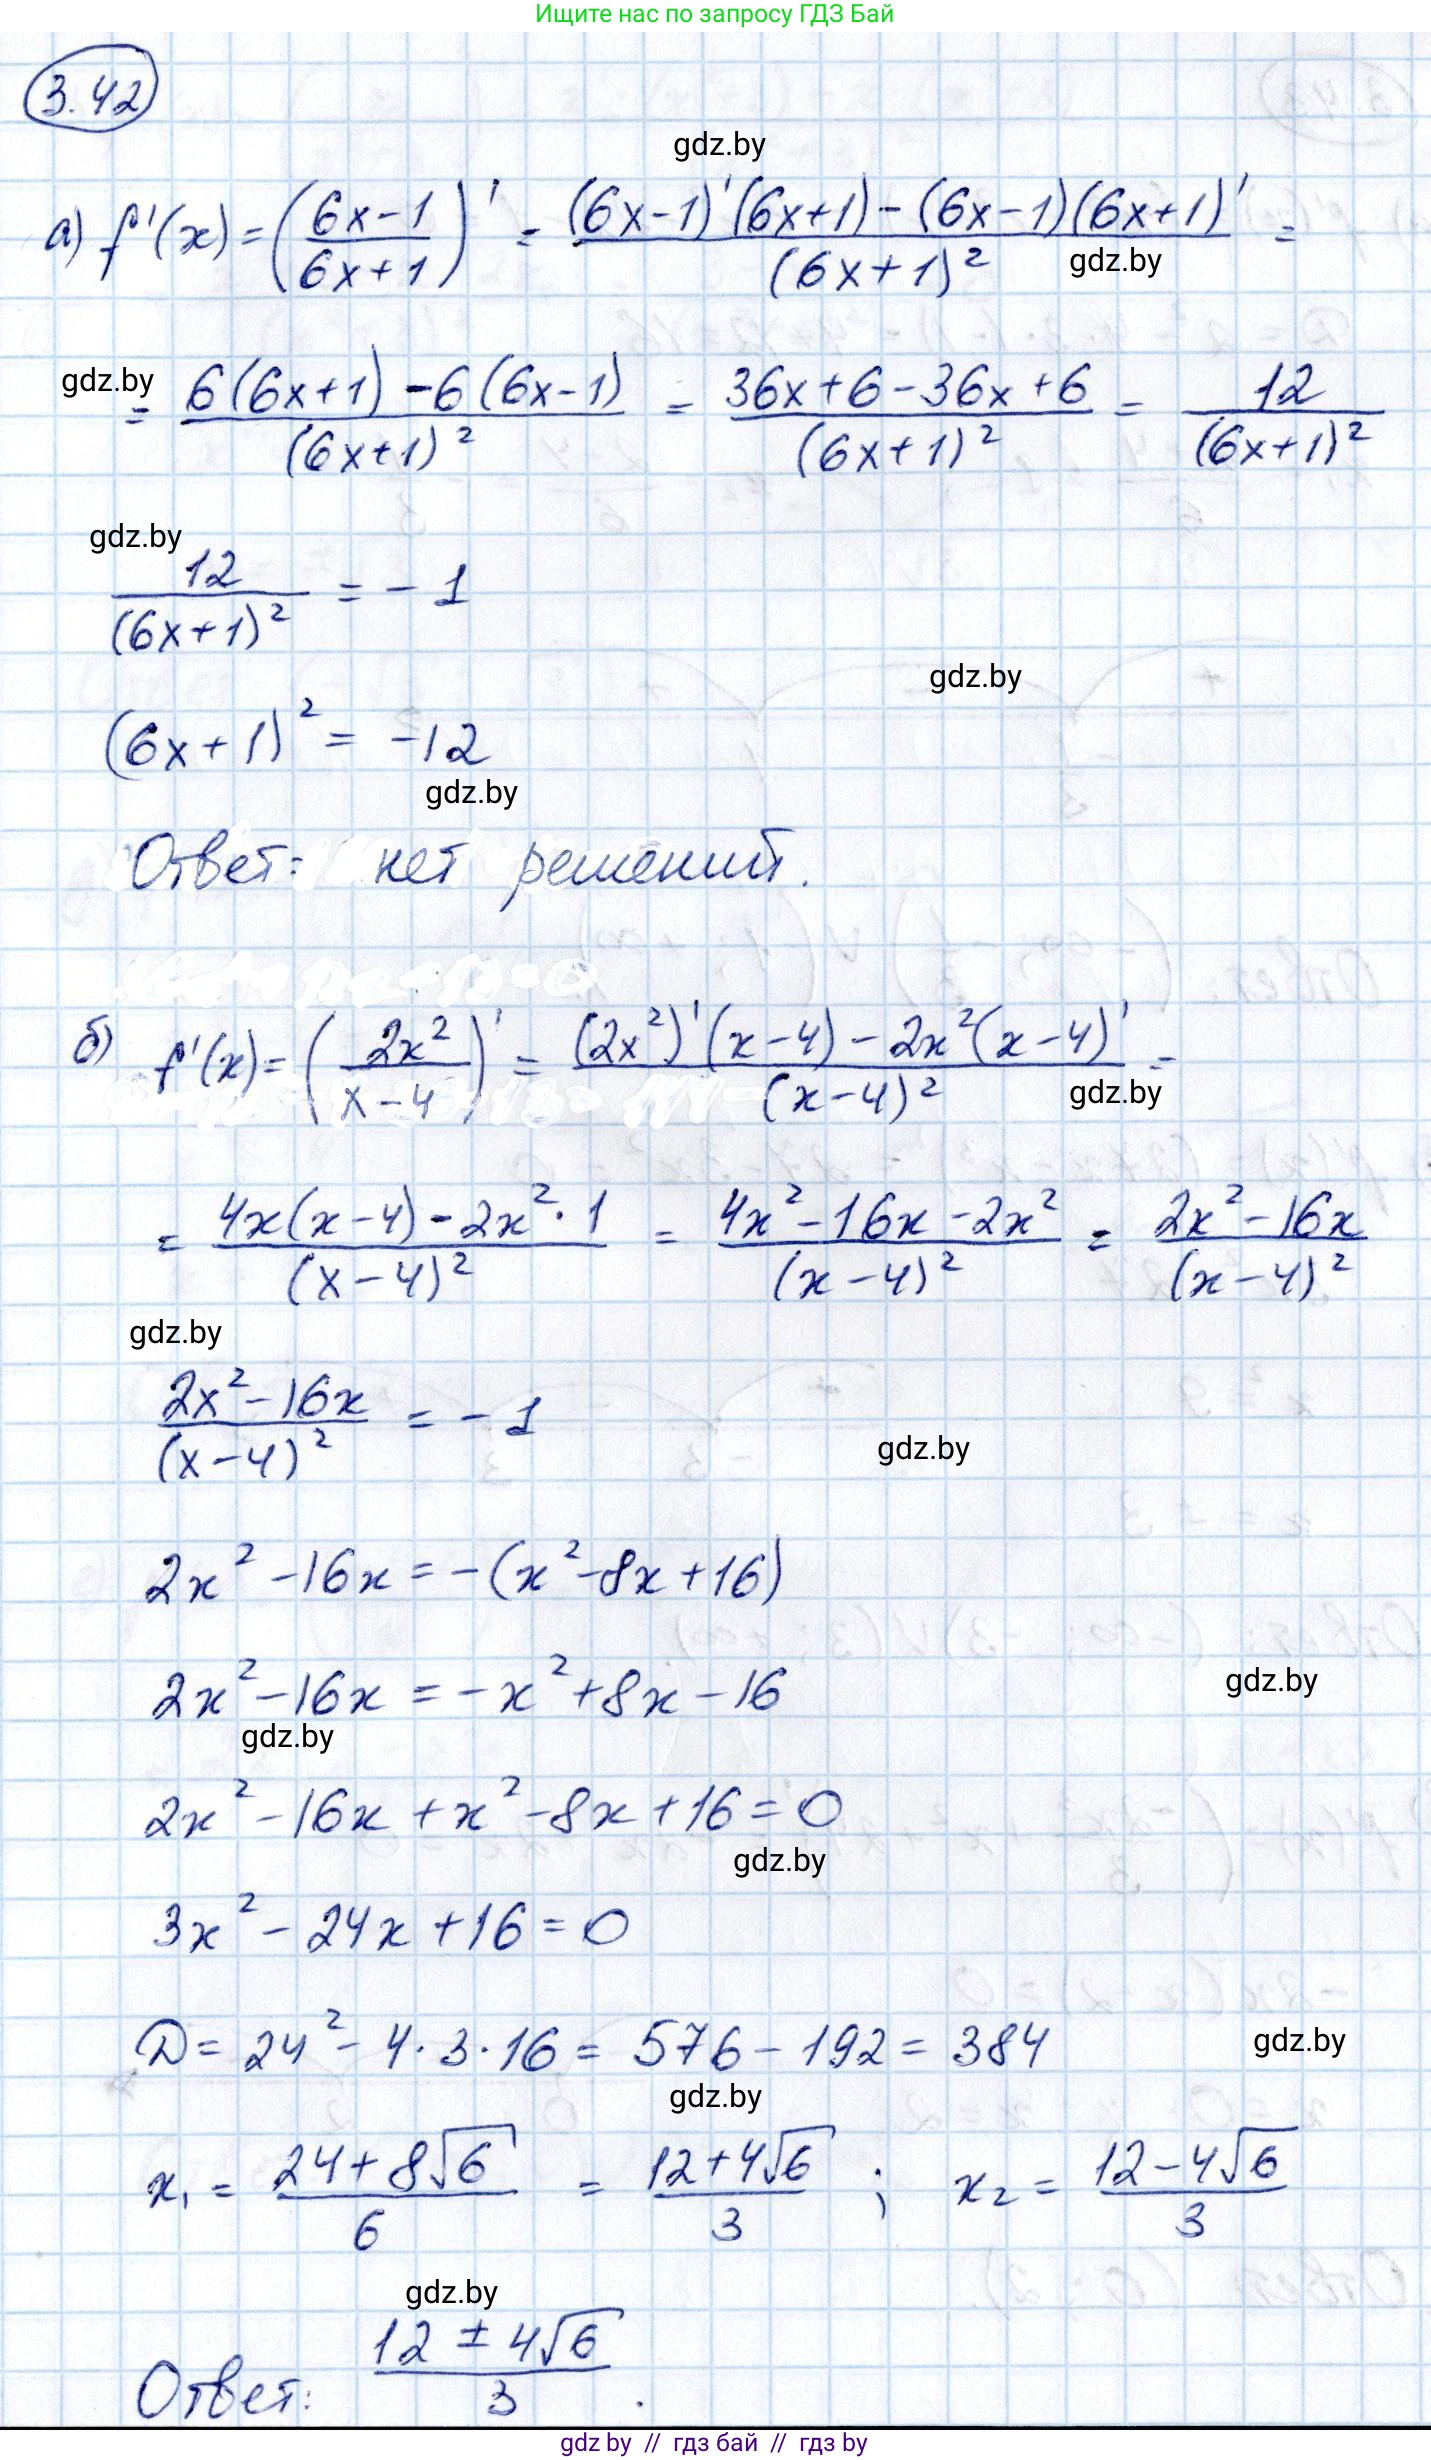 Ищите нас по запросу ГДЗ Бай
3.42
gdz.by
а) f'(x) = ((6x-1)/(6x+1))' = ((6x-1)'(6x+1) - (6x-1)(6x+1)')/(6x+1)² =
gdz.by
gdz.by
= (6(6x+1) - 6(6x-1))/(6x+1)² = (36x+6-36x+6)/(6x+1)² = 12/(6x+1)²
gdz.by
12/(6x+1)² = -1
gdz.by
(6x+1)² = -12
gdz.by
Ответ: нет решений.
б) f'(x) = (2x²/(x-4))' = ((2x²)'(x-4) - 2x²(x-4)')/(x-4)² =
gdz.by
= (4x(x-4) - 2x²·1)/(x-4)² = (4x²-16x-2x²)/(x-4)² = (2x²-16x)/(x-4)²
gdz.by
(2x²-16x)/(x-4)² = -1
gdz.by
2x² - 16x = -(x²-8x+16)
2x² - 16x = -x² + 8x - 16
gdz.by
gdz.by
2x² - 16x + x² - 8x + 16 = 0
gdz.by
3x² - 24x + 16 = 0
D = 24² - 4·3·16 = 576 - 192 = 384
gdz.by
gdz.by
x₁ = (24+8√6)/6 = (12+4√6)/3 ; x₂ = (12-4√6)/3
gdz.by
Ответ: (12 ± 4√6)/3.
gdz.by // гдз бай // гдз by